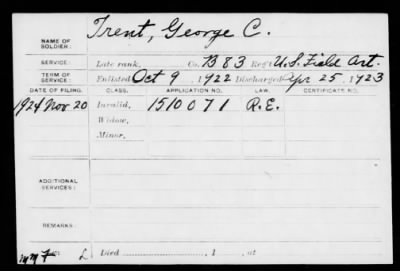 NAME OF SOLDIER: Trent, George C.
SERVICE: Late rank, Co. B 83 Reg't U.S. Field Art.
TERM OF SERVICE: Enlisted Oct 9, 1922 Discharged Apr. 25, 1923
DATE OF FILING. CLASS. APPLICATION NO. LAW. CERTIFICATE NO.
1924 Nov. 20 Invalid, 1510071 R.E.
Widow,
Minor,
ADDITIONAL SERVICES:
REMARKS:
Died , 1 , at